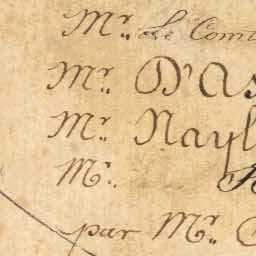 Mr. Le Com
Mr. D'As
Mr. Nayl
Mr.
par Mr.